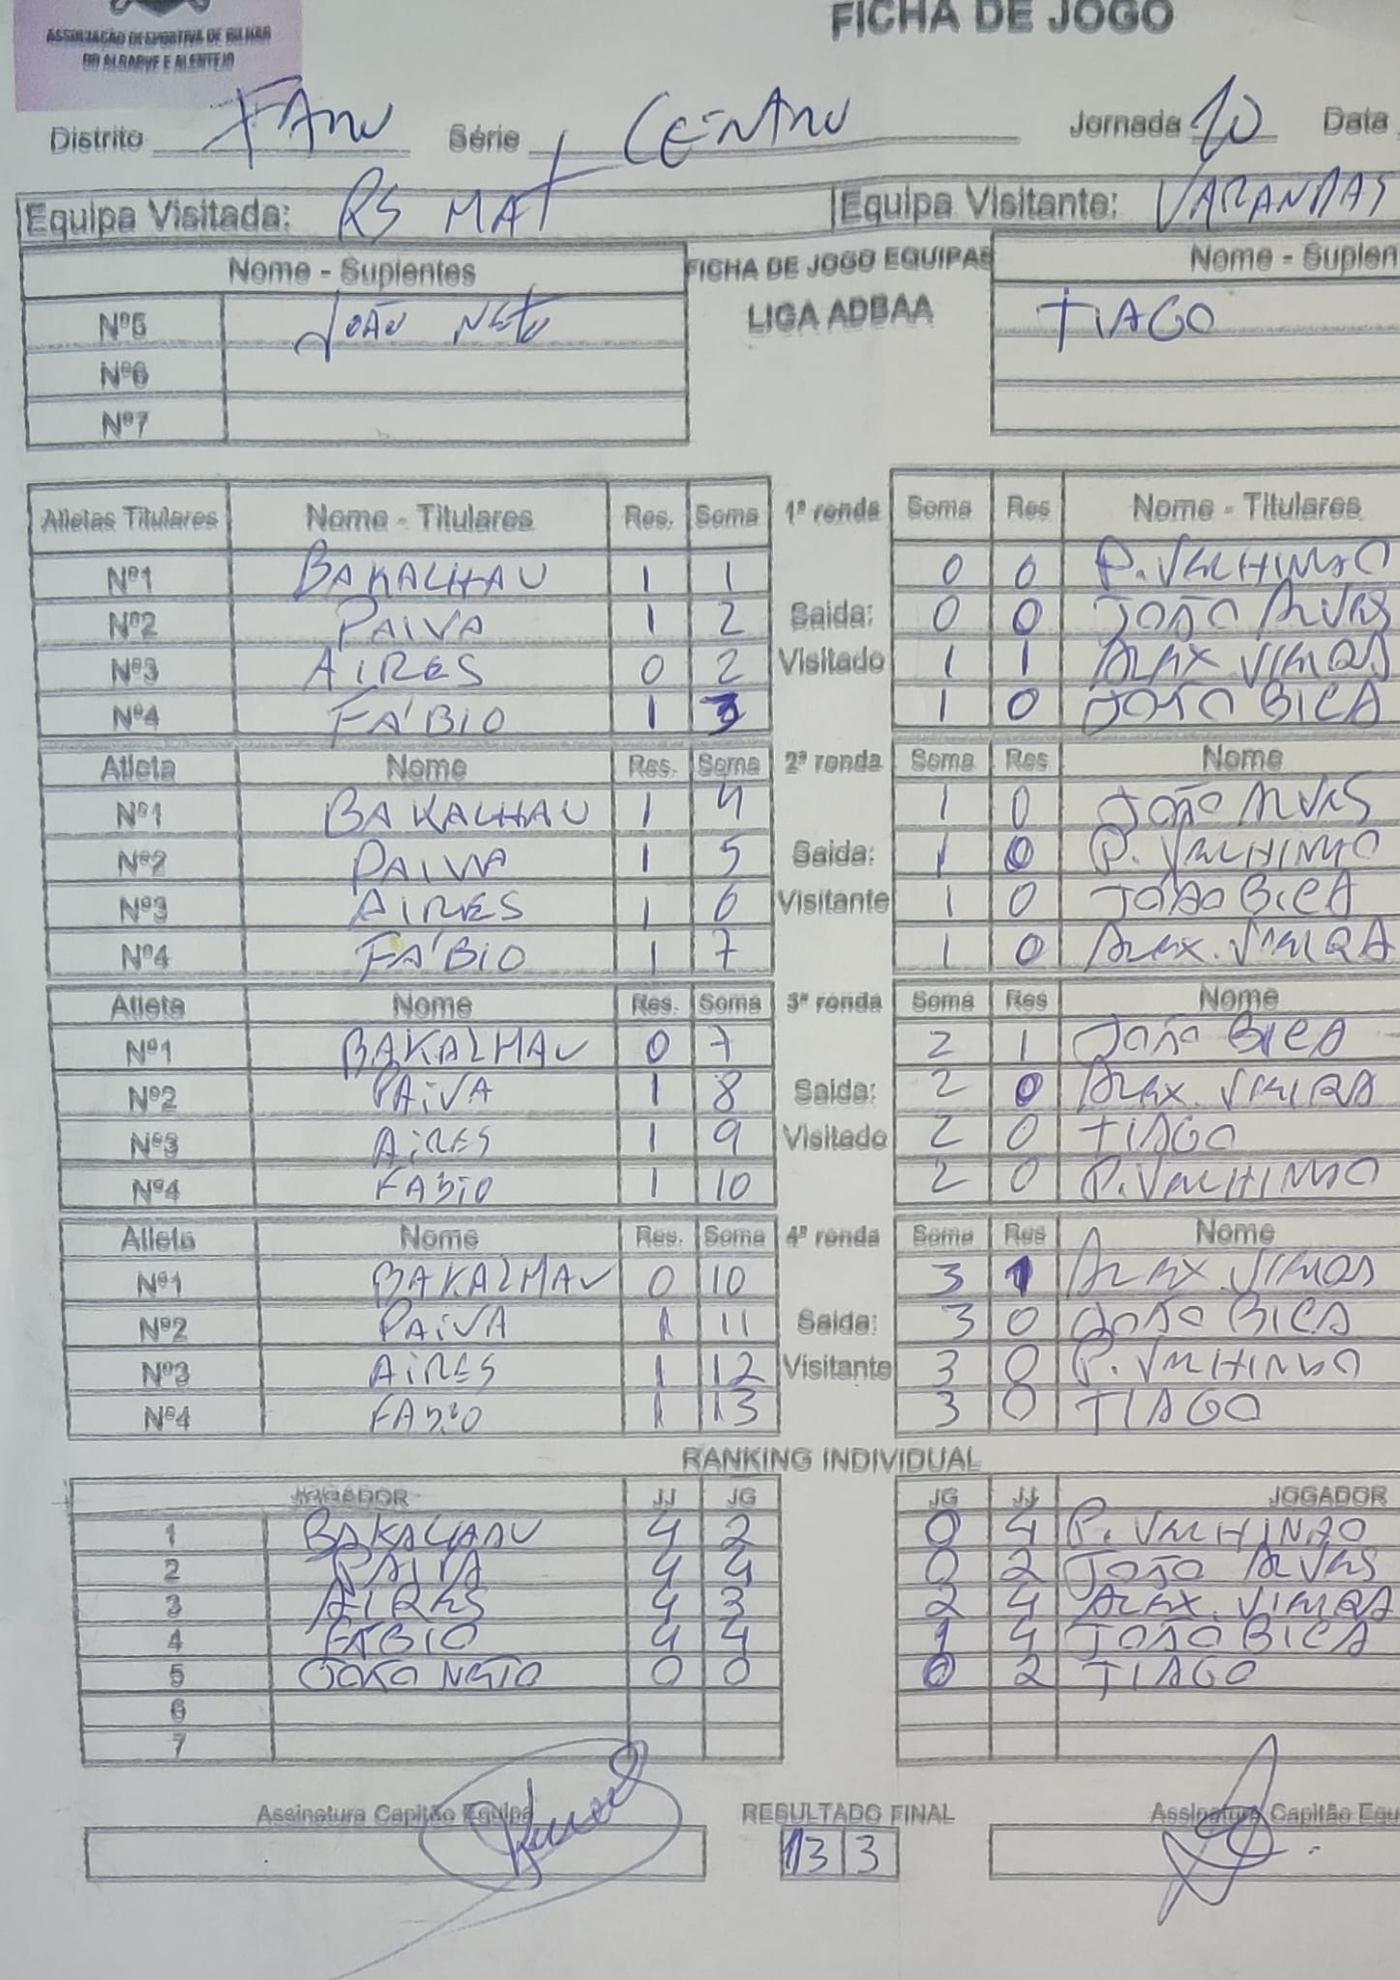 FICHA DE JOGO
ASSOCIAÇÃO DESPORTIVA DE BILHAR
DO ALGARVE E ALENTEJO
Distrito FARO Série CENTRO Jornada 10 Data
Equipa Visitada: RS MAT Equipa Visitante: VARANDAS
Nome - Suplentes FICHA DE JOGO EQUIPAS Nome - Suplen
Nº5 JOÃO NETO LIGA ADBAA TIAGO
Nº6
Nº7
Atletas Titulares Nome - Titulares Res. Soma 1ª ronda Soma Res Nome - Titulares
Nº1 BAKALHAU 1 1 0 0 P. VALHINHO
Nº2 PAIVA 1 2 Saida: 0 0 JOÃO ALVES
Nº3 AIRES 0 2 Visitado 1 1 ALEX VIEIRA
Nº4 FÁBIO 1 3 1 0 JOÃO BICA
Atleta Nome Res. Soma 2ª ronda Soma Res Nome
Nº1 BAKALHAU 1 4 1 0 JOÃO ALVES
Nº2 PAIVA 1 5 Saida: 1 0 P. VALHINHO
Nº3 AIRES 1 6 Visitante 1 0 JOÃO BICA
Nº4 FÁBIO 1 7 1 0 ALEX. VIEIRA
Atleta Nome Res. Soma 3ª ronda Soma Res Nome
Nº1 BAKALHAU 0 7 2 1 JOÃO BICA
Nº2 PAIVA 1 8 Saida: 2 0 ALEX. VIEIRA
Nº3 AIRES 1 9 Visitado 2 0 TIAGO
Nº4 FABIO 1 10 2 0 P. VALHINHO
Atleta Nome Res. Soma 4ª ronda Soma Res Nome
Nº1 BAKALHAU 0 10 3 1 ALEX VIEIRA
Nº2 PAIVA 1 11 Saida: 3 0 JOÃO BICA
Nº3 AIRES 1 12 Visitante 3 0 P. VALHINHO
Nº4 FABIO 1 13 3 0 TIAGO
RANKING INDIVIDUAL
JOGADOR JJ JG JG JJ JOGADOR
1 BAKALHAU 4 2 0 4 P. VALHINHO
2 PAIVA 4 4 0 2 JOÃO ALVES
3 AIRES 4 3 2 4 ALEX. VIEIRA
4 FÁBIO 4 4 1 4 JOÃO BICA
5 JOÃO NETO 0 0 0 2 TIAGO
6
7
Assinatura Capitão Equipa RESULTADO FINAL Assinatura Capitão Equ
13 3